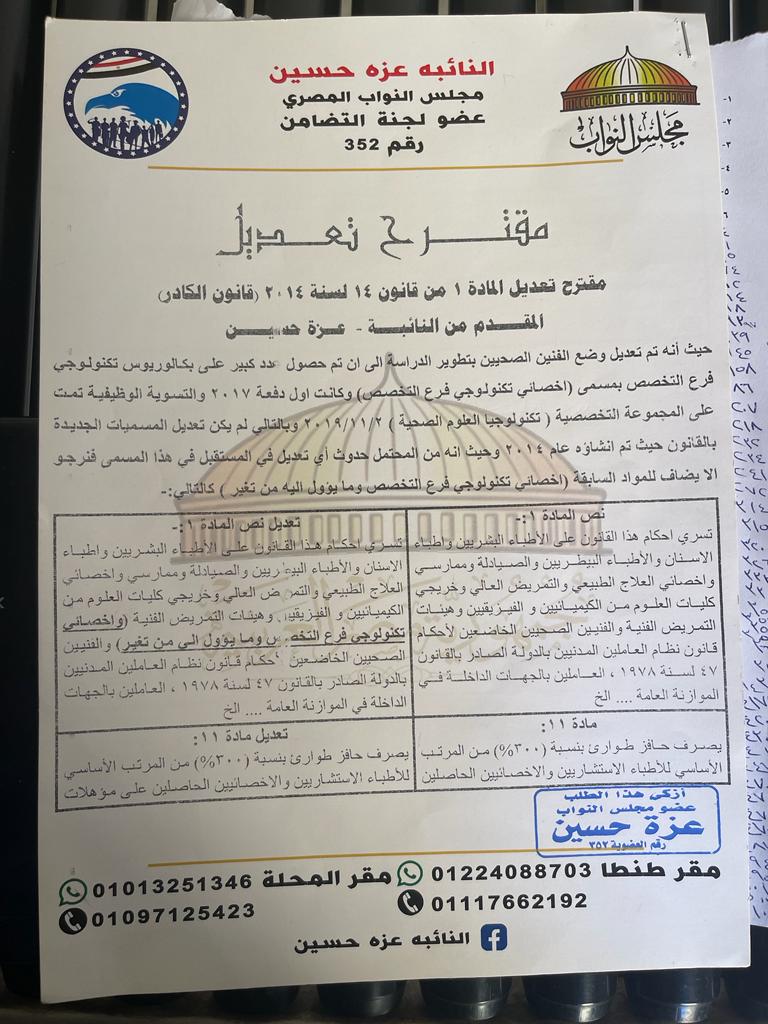 النائبه عزه حسين
مجلس النواب المصري
عضو لجنة التضامن
رقم 352
مجلس النواب
مقترح تعديل
مقترح تعديل المادة ١ من قانون ١٤ لسنة ٢٠١٤ (قانون الكادر)
المقدم من النائبة - عزة حسين
حيث أنه تم تعديل وضع الفنين الصحيين بتطوير الدراسة الى ان تم حصول عدد كبير على بكالوريوس تكنولوجي
فرع التخصص بمسمى (اخصائي تكنولوجي فرع التخصص) وكانت اول دفعة ٢٠١٧ والتسوية الوظيفية تمت
على المجموعة التخصصية (تكنولوجيا العلوم الصحية) ٢٠١٩/١١/٢ وبالتالي لم يكن تعديل المسميات الجديدة
بالقانون حيث تم انشاؤه عام ٢٠١٤ وحيث انه من المحتمل حدوث أي تعديل في المستقبل في هذا المسمى فنرجو
الا يضاف للمواد السابقة (اخصائي تكنولوجي فرع التخصص وما يؤول اليه من تغير) كالتالي:-
نص المادة ١:-
تسري احكام هذا القانون على الأطباء البشريين واطباء
الاسنان والأطباء البيطريين والصيادلة وممارسي
واخصائي العلاج الطبيعي والتمريض العالي وخريجي
كليات العلوم من الكيميائيين والفيزيقيين وهيئات
التمريض الفنية والفنيين الصحيين الخاضعين لأحكام
قانون نظام العاملين المدنيين بالدولة الصادر بالقانون
٤٧ لسنة ١٩٧٨ ، العاملين بالجهات الداخلة في
الموازنة العامة .... الخ
تعديل نص المادة ١:-
تسري احكام هذا القانون على الأطباء البشريين واطباء
الاسنان والأطباء البيطريين والصيادلة وممارسي واخصائي
العلاج الطبيعي والتمريض العالي وخريجي كليات العلوم من
الكيميائيين والفيزيقيين وهيئات التمريض الفنية (واخصائي
تكنولوجي فرع التخصص وما يؤول الى من تغير) والفنيين
الصحيين الخاضعين لأحكام قانون نظام العاملين المدنيين
بالدولة الصادر بالقانون ٤٧ لسنة ١٩٧٨ ، العاملين بالجهات
الداخلة في الموازنة العامة .... الخ
مادة ١١:
يصرف حافز طوارئ بنسبة (٣٠٠%) من المرتب
الأساسي للأطباء الاستشاريين والاخصائيين الحاصلين
تعديل مادة ١١:
يصرف حافز طوارئ بنسبة (٣٠٠%) من المرتب الأساسي
للأطباء الاستشاريين والاخصائيين الحاصلين على مؤهلات
أزكي هذا الطلب
عضو مجلس النواب
عزة حسين
رقم العضوية ٣٥٢
مقر طنطا 01224088703 مقر المحلة 01013251346
01117662192 01097125423
النائبه عزه حسين